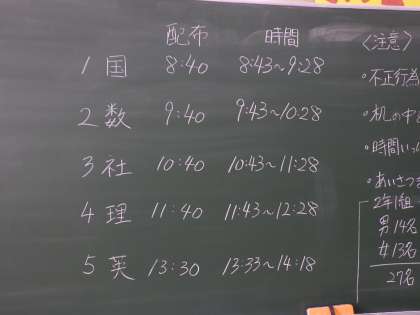 配布 時間
1 国 8:40 8:43~9:28
2 数 9:40 9:43~10:28
3 社 10:40 10:43~11:28
4 理 11:40 11:43~12:28
5 英 13:30 13:33~14:18
〈注意〉
・不正行為
・机の中
・時間いっ
・あいさつ
2年1組
男14名
女13名
27名